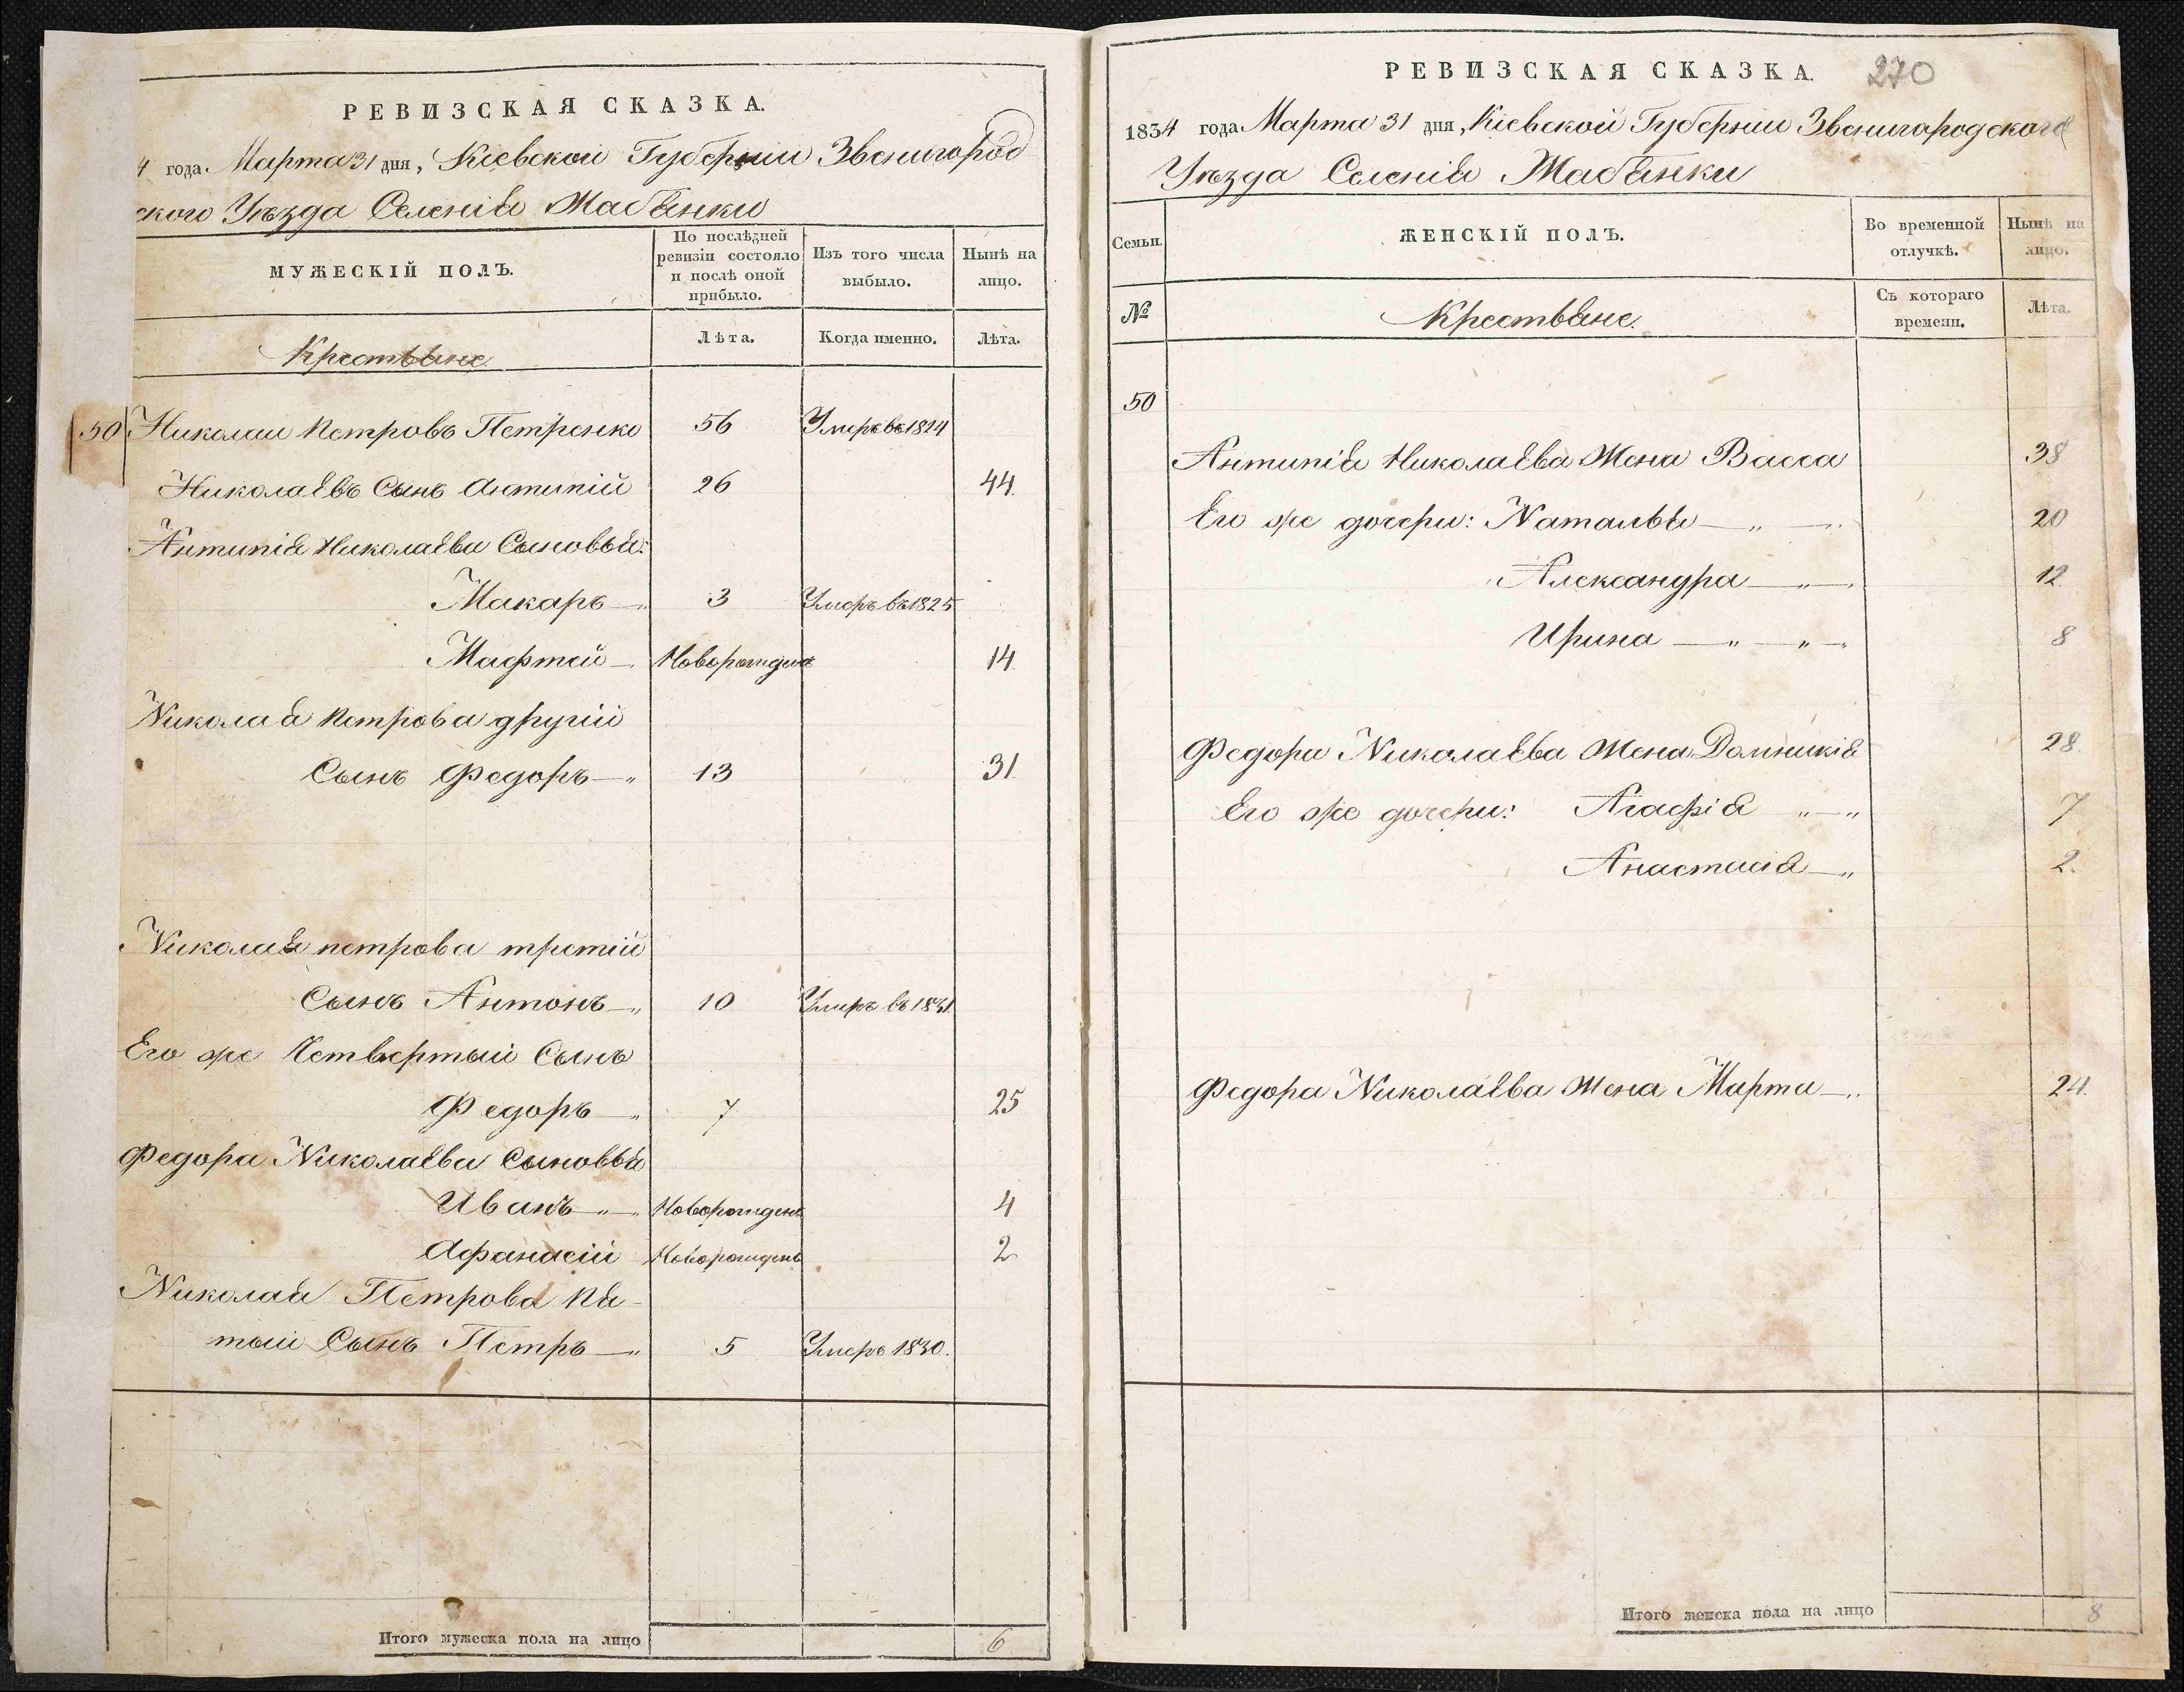 РЕВИЗСКАЯ СКАЗКА.
4 года Марта 31 дня, Кіевской Губерніи Звенигород
ского Уѣзда Селенія Жабянки
МУЖЕСКІЙ ПОЛЪ.
По послѣдней ревизіи состояло и послѣ оной прибыло.
Изъ того числа выбыло.
Нынѣ на лицо.
Крестьяне
Лѣта.
Когда именно.
Лѣта.
50 Николай Петровъ Петренко 56 Умеръ въ 1824
Николаевъ Сынъ Антипій 26 44.
Антипія Николаева Сыновья:
Макаръ — „ 3 Умеръ въ 1825
Мафтей — Новорожденъ 14.
Николая Петрова другій
Сынъ Федоръ — „ 13 31
Николая петрова третій
Сынъ Антонъ — „ 10 Умеръ въ 1831
Его же Четвертый Сынъ
Федоръ — „ 7 25
Федора Николаева Сыновья
Иванъ — „ — Новорожденъ 4
Афанасій Новорожденъ 2
Николая Петрова Пя-
тый Сынъ Петръ — „ 5 Умеръ 1830.
Итого мужеска пола на лицо 6
РЕВИЗСКАЯ СКАЗКА. 270
1834 года Марта 31 дня, Кіевской Губерніи Звенигородского
Уѣзда Селенія Жабянки
Семьи.
ЖЕНСКІЙ ПОЛЪ.
Во временной отлучкѣ.
Нынѣ на лицо.
№
Крестьяне.
Съ котораго времени.
Лѣта.
50
Антипія Николаева Жена Васса 38
Его же дочери: Наталья — „ — „ 20
Александра — „ — 12.
Ирина — „ — „ — 8
Федора Николаева Жена Домникія 28.
Его же дочери: Агафія „ — „ 7
Анастасія — „ 2.
Федора Николаева Жена Марта — „ 24.
Итого женска пола на лицо 8